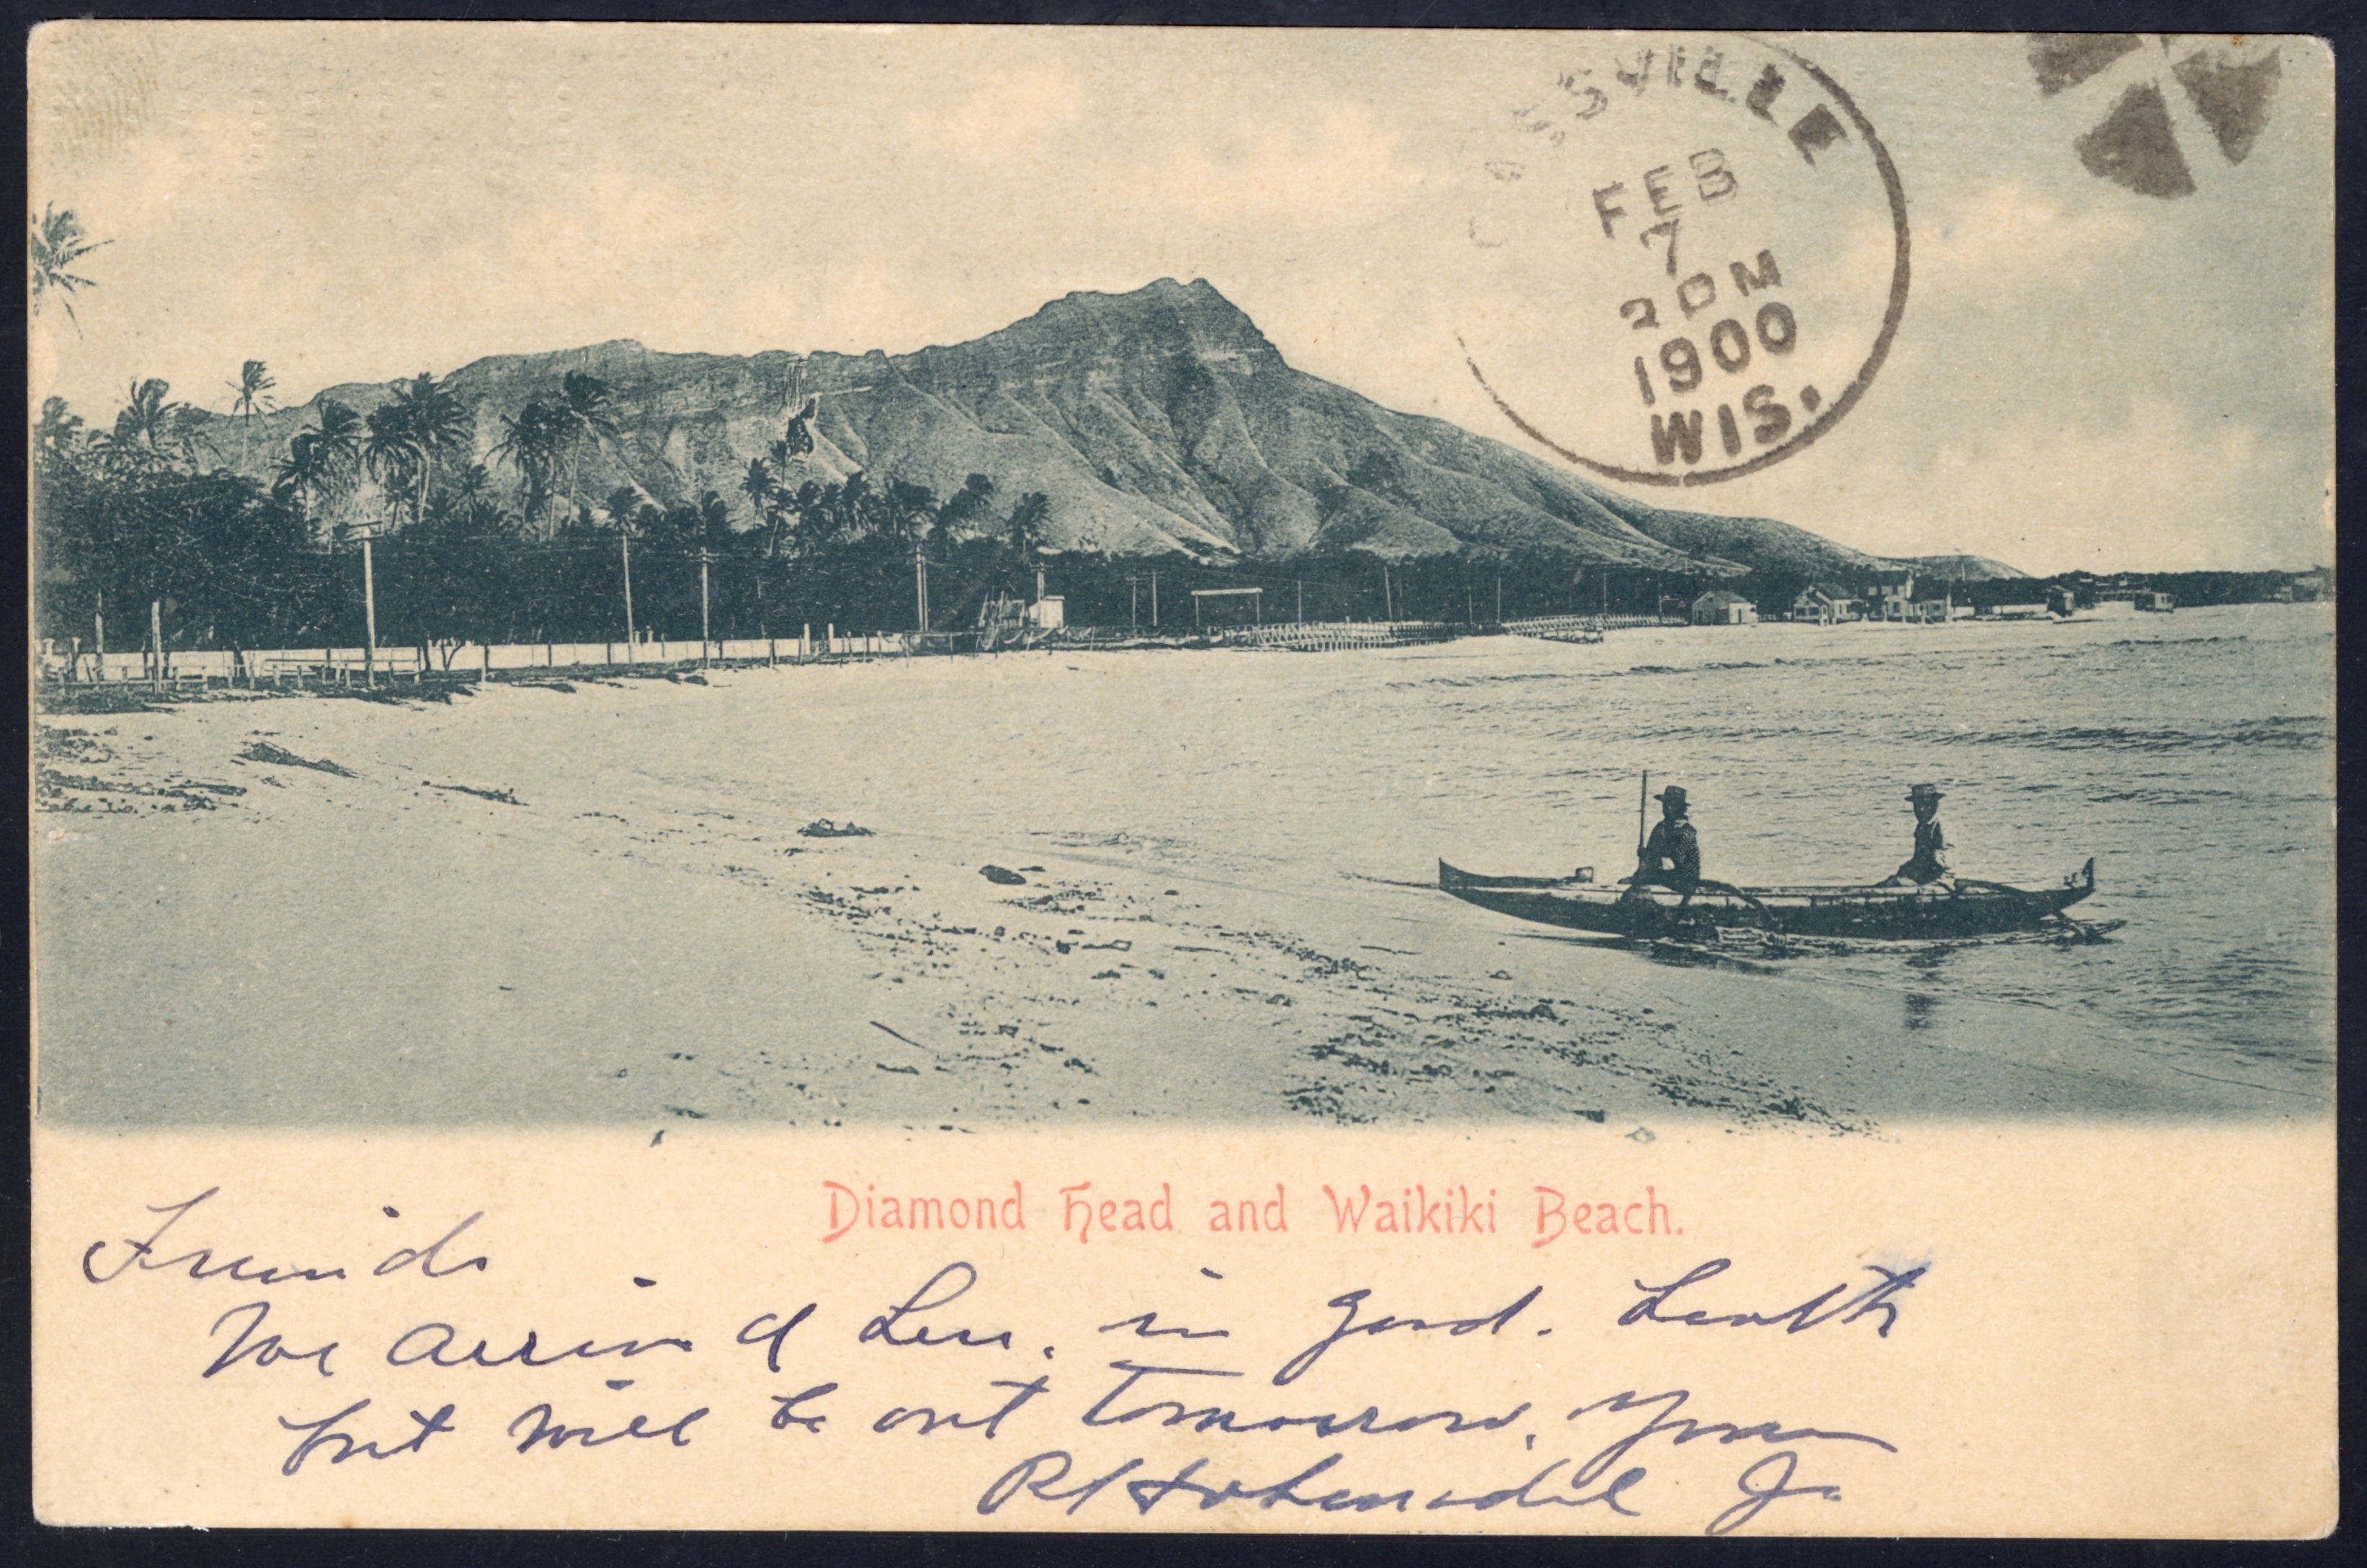 SVILLE
FEB
7
PM
1900
WIS.
Diamond Head and Waikiki Beach.
Friends
We arrived here, in good. health
but will be out tomorrow, Yours
Jr.